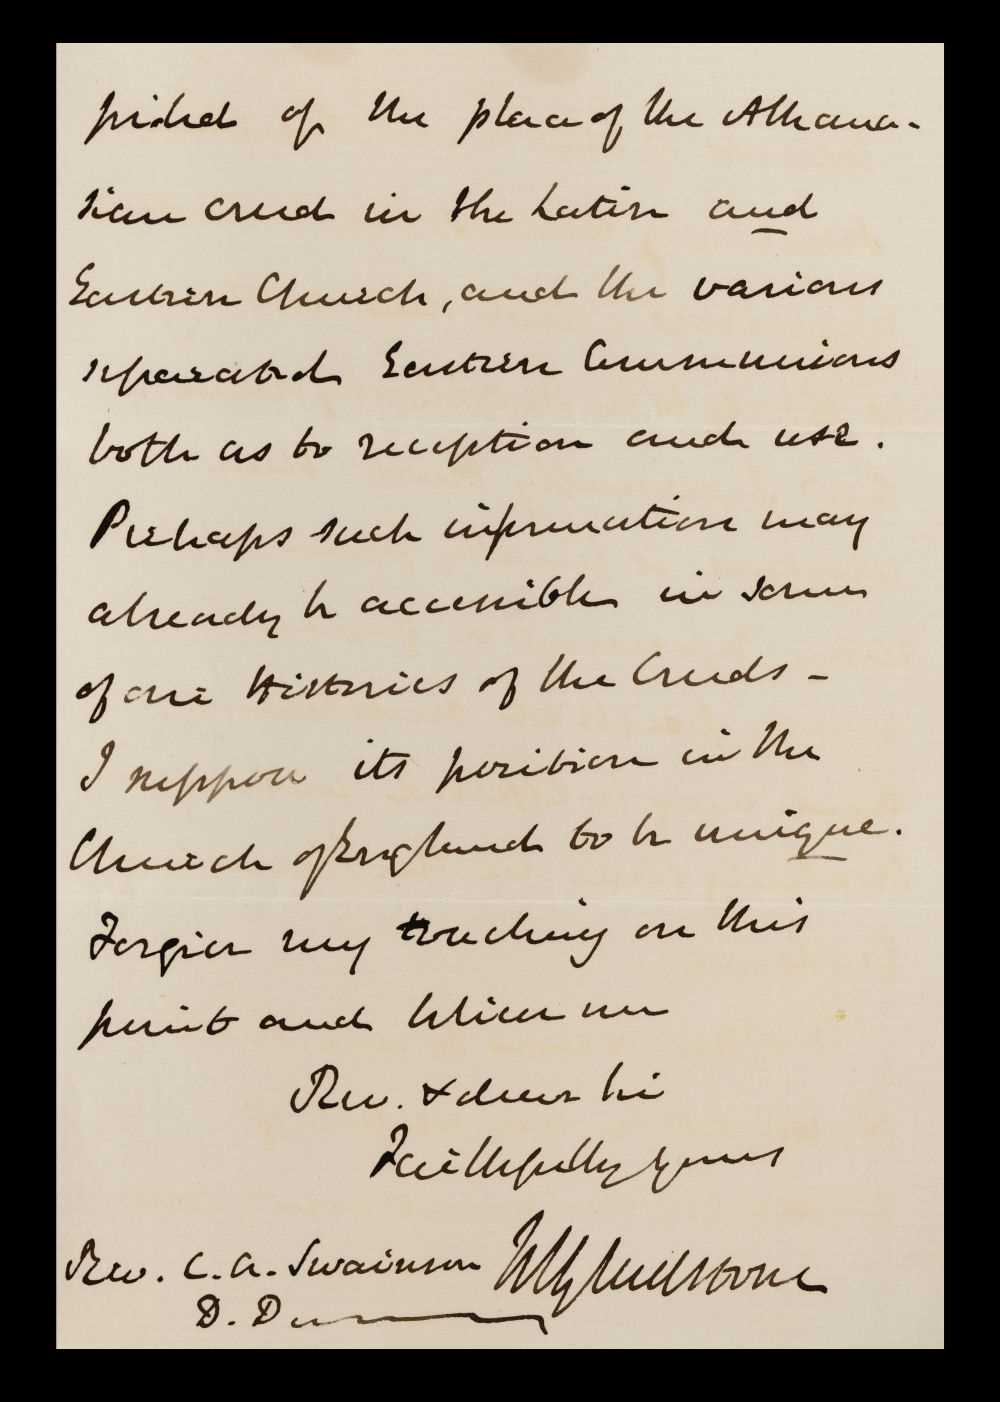 of the place of the Athana-
sian creed in the Latin and
Eastern Church, and the various
separated Eastern Communions
both as to reception and use.
Perhaps such information may
already be accessible in some
of our Histories of the Creeds -
I suppose its position in the
Church of England to be unique.
Forgive my touching on this
point and believe me
Rev. & dear Sir
Faithfully yours
Rev. C. A. Swainson WEGladstone
D. D.